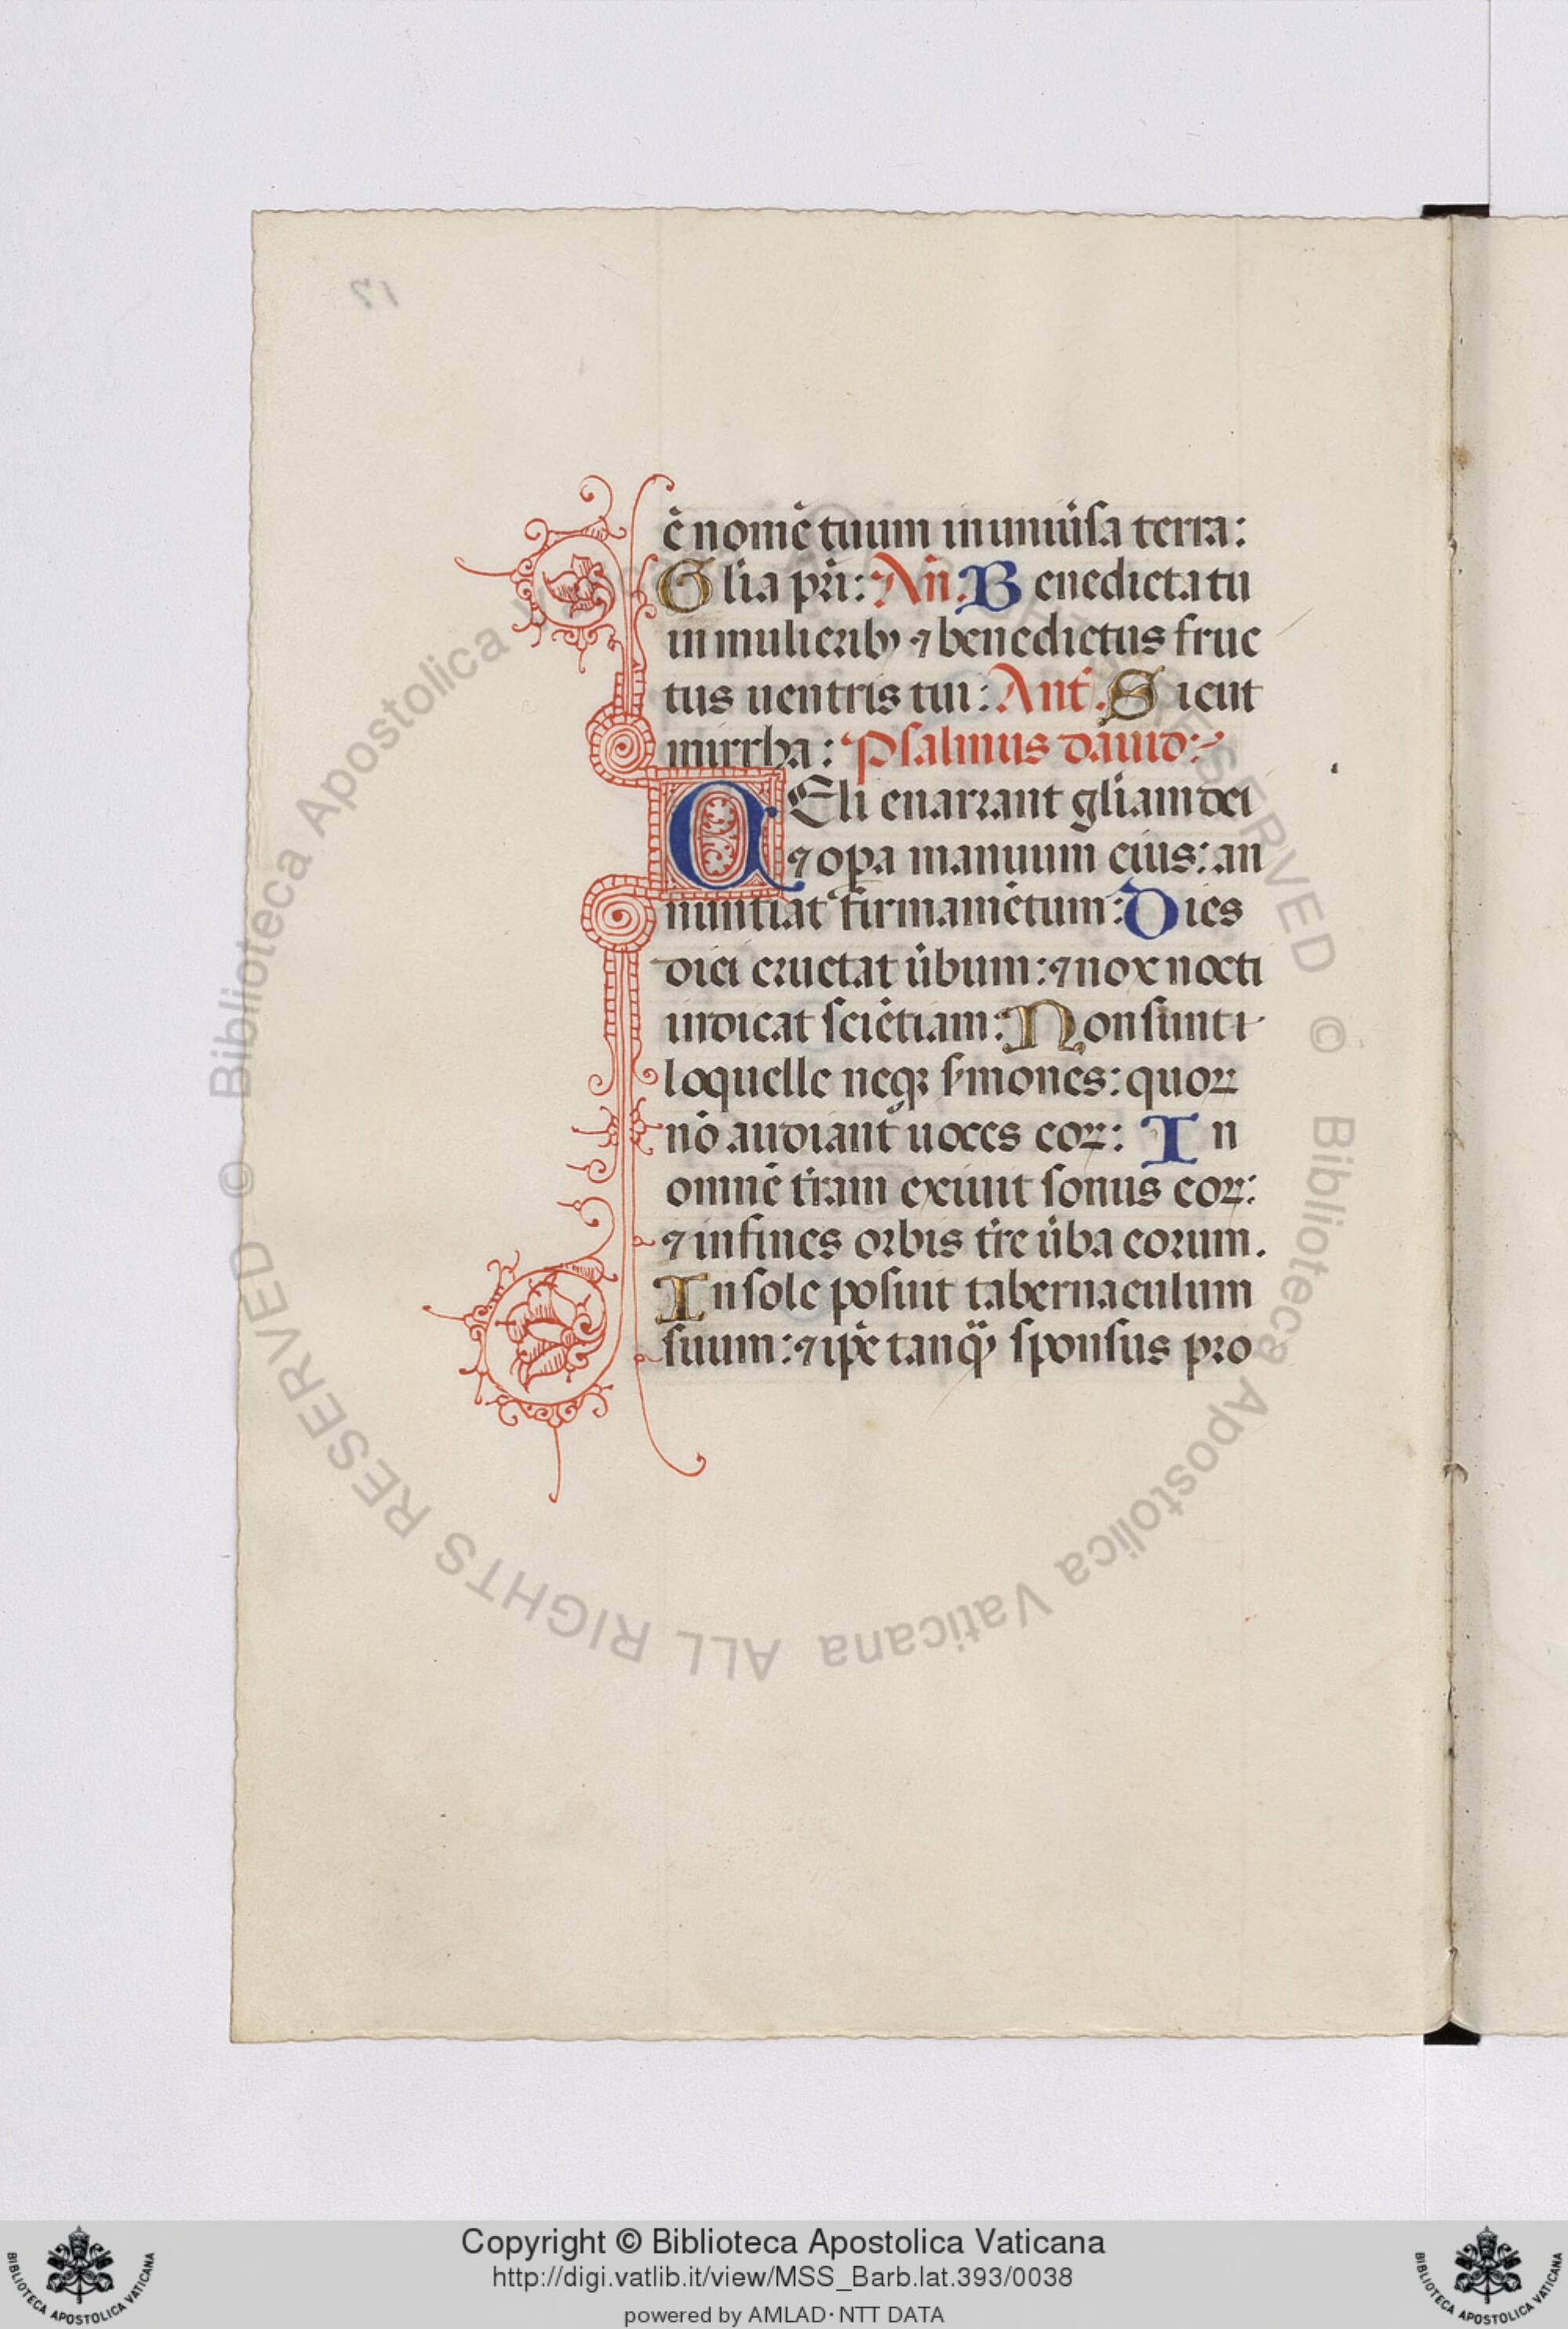 ē nomē tuum in uniu̇ſa terra:
Glia pr̄i: An̄. Benedicta tu
in mulieribꝫ ⁊ benedictus fruc
tus uentris tui: Ant̄. Sicut
mirrha: Psalmus dauid:
CEli enarrant gl̄iam dei
⁊ opa manuum eius: an
nuntiat firmamētum: Dies
diei eructat u̇bum: ⁊ nox nocti
indicat ſciētiam: Non ſunt
loquelle neqꝫ ſmones: quoꝝ
nō audiant᷑ uoces eoꝝ: In
omnē tr̄am exiuit ſonus eoꝝ:
⁊ in fines orbis tr̄e u̇ba eorum.
In ſole poſuit tabernaculum
ſuum: ⁊ ip̄e tanqꝫ ſponſus pro
© Biblioteca Apostolica Vaticana ALL RIGHTS RESERVED
© Biblioteca Apostolica Vaticana ALL RIGHTS RESERVED
Copyright © Biblioteca Apostolica Vaticana
http://digi.vatlib.it/view/MSS_Barb.lat.393/0038
powered by AMLAD · NTT DATA
BIBLIOTECA APOSTOLICA VATICANA
BIBLIOTECA APOSTOLICA VATICANA